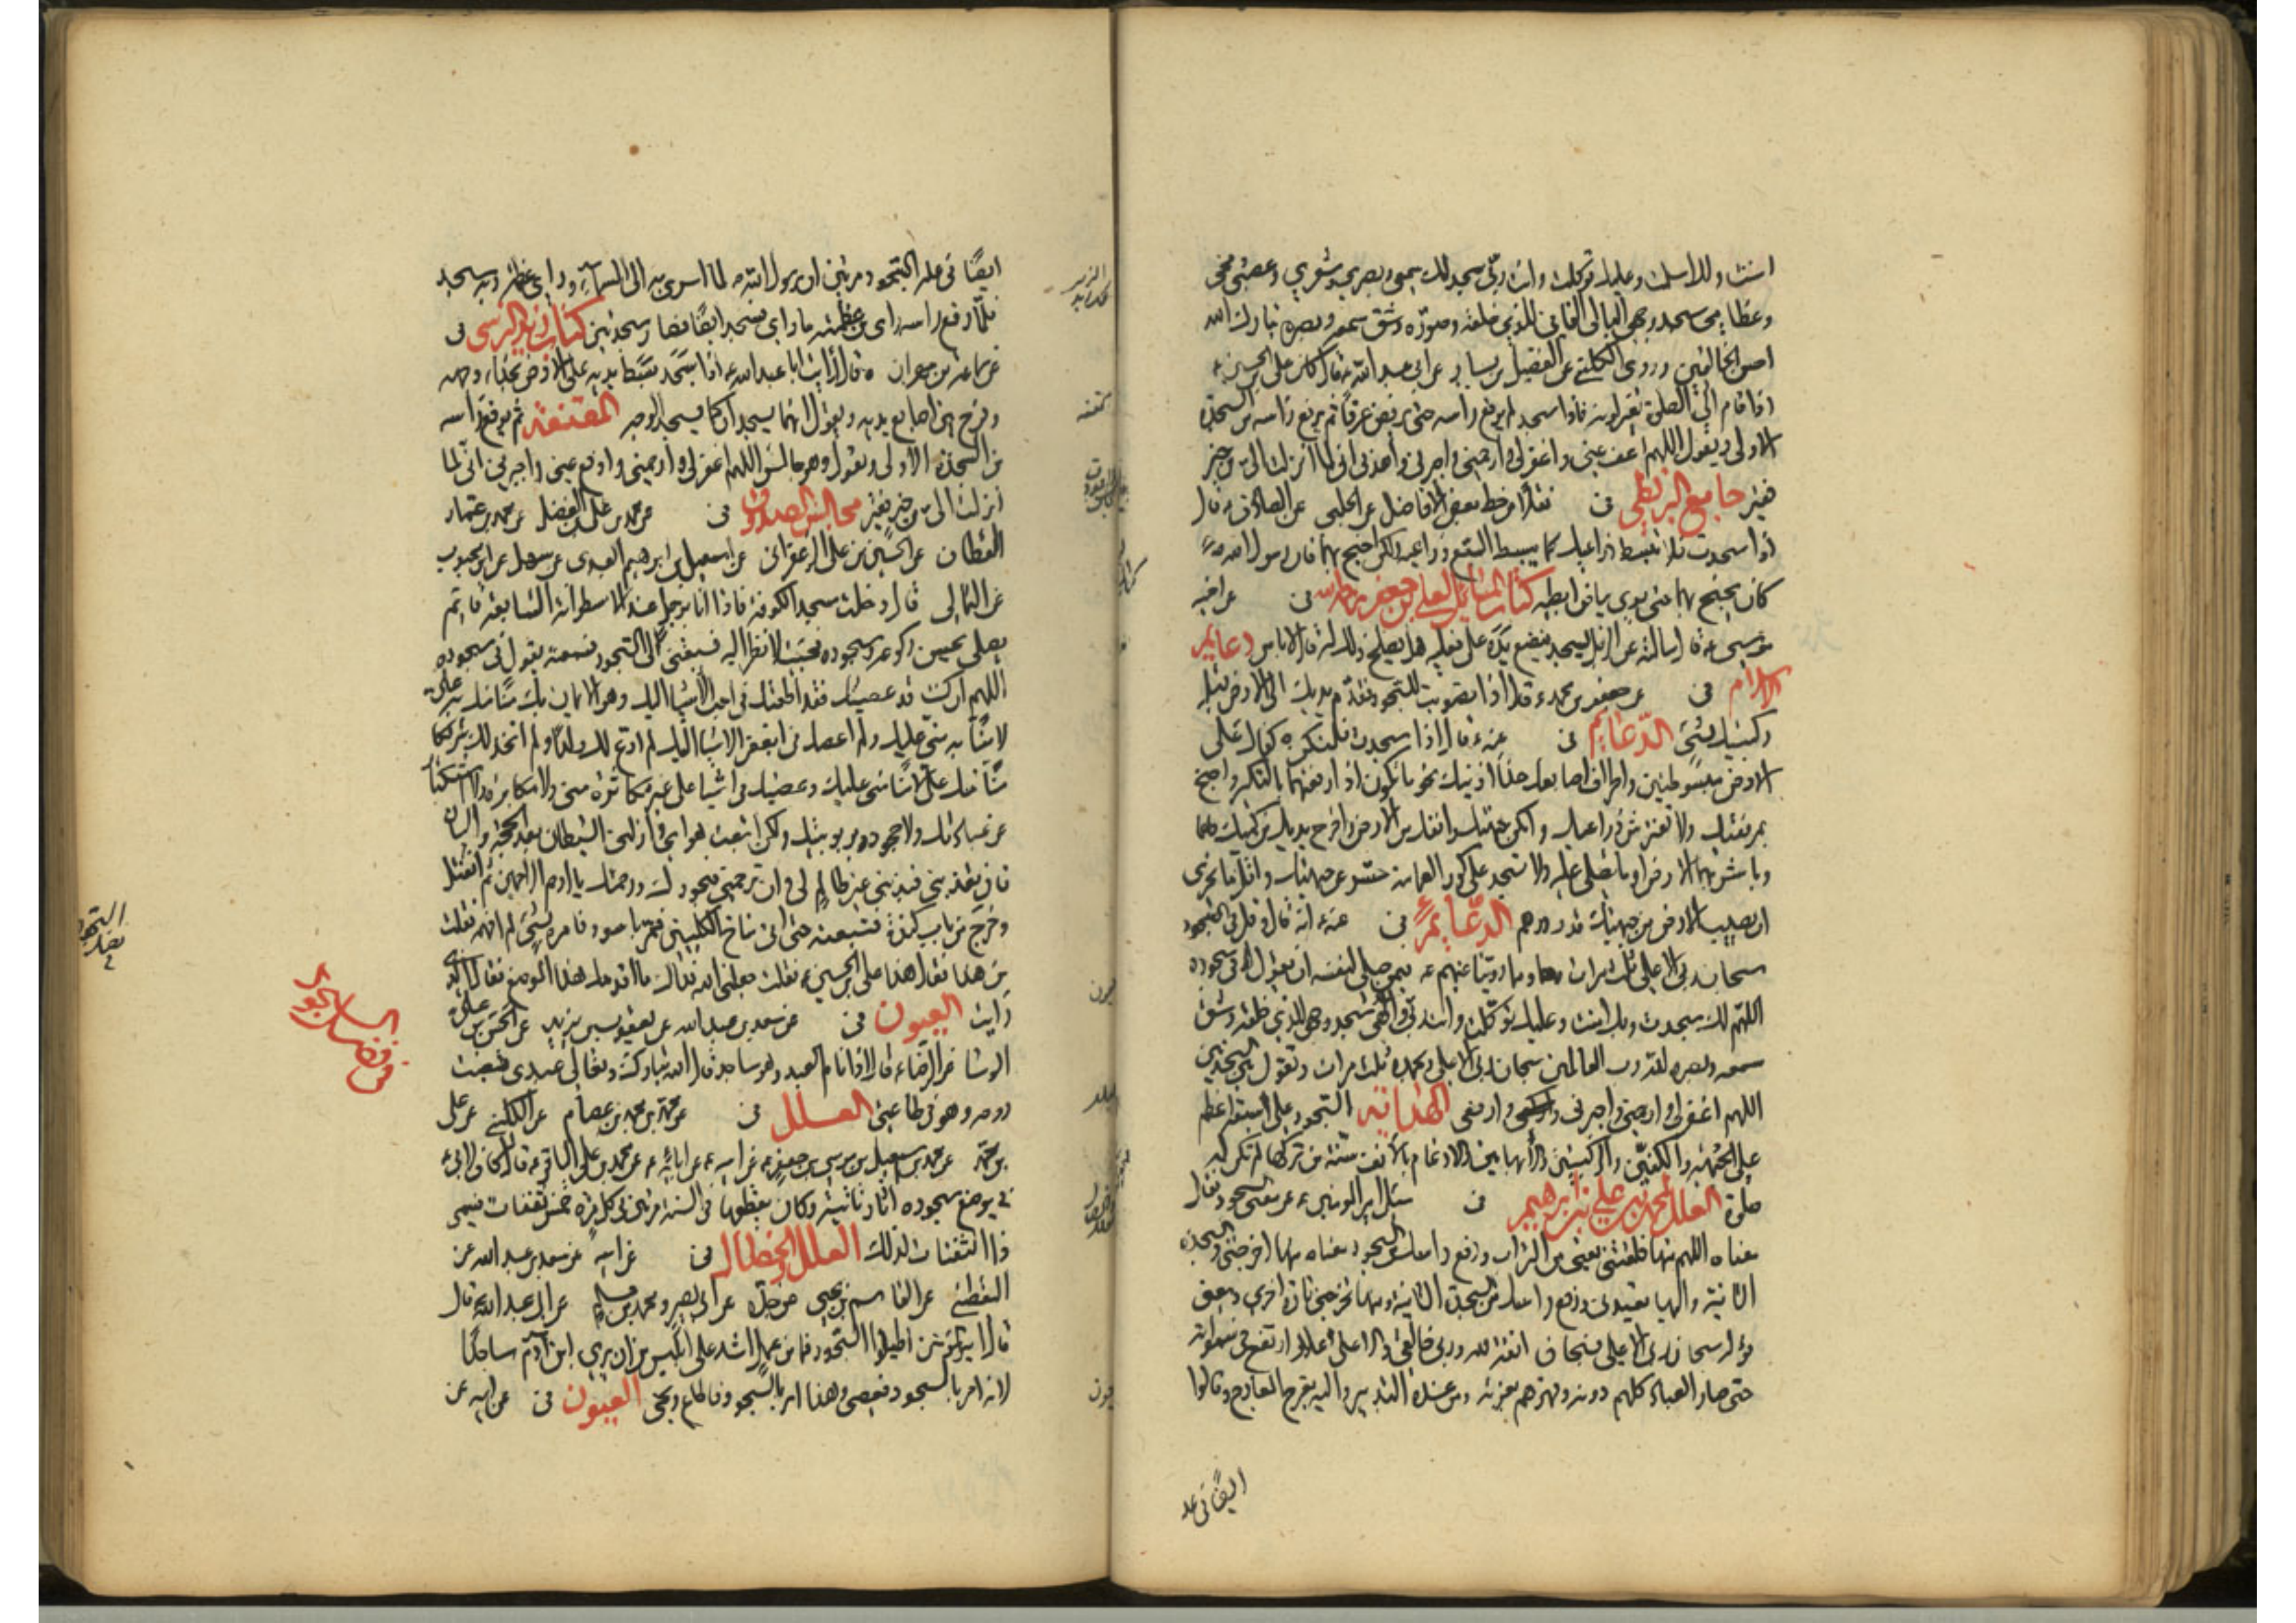 امنت ولك اسلمت وعليك توكلت وانت ربي سجد لك سمعي وبصري وشعري وعصبي ومخي
وعظامي سجد وجهي البالي الفاني للذي خلقه وصوره وشق سمعه وبصره تبارك الله
احسن الخالقين وروى الكليني عن الفضيل بن يسار عن ابي عبد الله ع قال كان علي بن الحسين ع
اذا قام الى الصلوة تغير لونه فاذا سجد لم يرفع راسه حتى يرفض عرقا ثم يرفع راسه من السجدة
الاولى ويقول اللهم اعف عني واغفر لي وارحمني واجبرني واهدني اني لما انزلت الي من خير
فقير جامع البزنطي فى نقلا من خط بعض الافاضل عن الحلبي عن الصادق ع قال
اذا سجدت فلا تبسط ذراعيك كما يبسط السبع ذراعيه ولكن اجنح بهما فان رسول الله ص
كان يجنح بهما حتى يرى بياض ابطيه كتاب المسائل لعلي بن جعفر فى عن اخيه
موسى ع قال سالته عن الرجل يسجد فيضع يده على نعله هل يصلح ذلك له قال لا باس دعايم
الاسلام فى عن جعفر بن محمد ع قال اذا تصوبت للسجود فقدم يديك الى الارض قبل
ركبتيك بشيء الدعايم فى عنه ع قال اذا سجدت فلتكن كفاك على
الارض مبسوطتين واطراف اصابعك حذاء اذنيك نحو ما تكون اذا رفعتهما بالتكبير واجنح
بمرفقيك ولا تفترش ذراعيك وامكن جبهتك وانفك من الارض واخرج يديك من كميك
وباشر بهما الارض او ما تصلي عليه ولا تسجد على كور العمامة احسر عن جبهتك واقل ما يجزي
ان يصيب الارض من جبهتك قدر درهم الدعايم فى عنه ع انه قال وقل في السجود
سبحان ربي الاعلى ثلث مرات وما روينا عنهم ع فيمن صلى لنفسه ان يقول في سجوده
اللهم لك سجدت وبك امنت وعليك توكلت وانت ربي والهي سجد وجهي للذي خلقه وشق
سمعه وبصره لله رب العالمين سبحان ربي الاعلى وبحمده ثلث مرات وتقول بين السجدتين
اللهم اغفر لي وارحمني واجبرني وارفعني الهداية السجود على سبعة اعظم
على الجبهة والكفين والركبتين والابهامين والارغام بالانف سنة من تركها لم تكن له
صلوة العلل لمحمد بن علي بن ابراهيم فى سئل امير المؤمنين ع عن معنى السجود فقال
معناه اللهم منها خلقتني يعني من التراب ورفع راسك من السجود معناه منها اخرجتني والسجدة
الثانية واليها تعيدني ورفع راسك من السجدة الثانية ومنها تخرجني تارة اخرى ومعنى
قوله سبحان ربي الاعلى فسبحان انفة لله وربي خالقي والاعلى اي علا وارتفع في سمواته
حتى صار العباد كلهم دونه وقهرهم بعزته ومن عنده التدبير واليه يعرج المعارج وقالوا
ايضا فى عله
ايضا في علة السجود مرتين ان رسول الله ص لما اسري به الى السماء وراى عظمة ربه سجد
فلما رفع راسه راى من عظمته ما راى فسجد ايضا فصار سجدتين كتاب زيد النرسي فى
عن سماعة بن مهران قال رايت ابا عبد الله ع اذا سجد بسط يديه على الارض بحذاء وجهه
وفرج بين اصابع يديه ويقول انهما يسجدان كما يسجد الوجه المقنعة ثم يرفع راسه
من السجدة الاولى ويقول وهو جالس اللهم اغفر لي وارحمني وادفع عني واجبرني اني لما
انزلت الي من خير فقير مجالس الصدوق فى عن محمد بن علي بن الفضل عن محمد بن عمار
القطان عن الحسين بن علي الزعفراني عن اسمعيل بن ابرهيم العبدي عن سهل عن ابن محبوب
عن الثمالي قال دخلت مسجد الكوفة فاذا انا برجل عند الاسطوانة السابعة قائم
يصلي يحسن ركوعه وسجوده فجئت لانظر اليه فسبقني الى السجود فسمعته يقول في سجوده
اللهم ان كنت قد عصيتك فقد اطعتك في احب الاشياء اليك وهو الايمان بك منا منك به علي
لا منا به مني عليك ولم اعصك في ابغض الاشياء اليك لم ادع لك ولدا ولم اتخذ لك شريكا
منا منك علي لا منا مني عليك وعصيتك في اشياء على غير مكاثرة مني ولا مكابرة ولا استكبار
عن عبادتك ولا جحود لربوبيتك ولكن اتبعت هواي وازلني الشيطان بعد الحجة والبيان
فان تعذبني فبذنبي غير ظالم لي وان ترحمني فبجودك ورحمتك يا ارحم الراحمين ثم انفتل
وخرج من باب كندة فتبعته حتى اتى مناخ الكلبيين فمر باسود فامره بشيء لم افهمه فقلت
من هذا فقال هذا علي بن الحسين ع فقلت جعلني الله فداك ما اقدمك هذا الموضع فقال الذي
رايت العيون فى عن سعد بن عبد الله عن يعقوب بن يزيد عن الحسن بن علي
الوشا عن الرضا ع قال اذا نام العبد وهو ساجد قال الله تبارك وتعالى عبدي قبضت
روحه وهو في طاعتي العلل فى عن محمد بن محمد بن عصام عن الكليني عن علي
بن محمد عن محمد بن اسمعيل بن موسى بن جعفر ع عن ابيه عن ابائه ع عن محمد بن علي الباقر ع قال كان لابي ع
في موضع سجوده اثار ناتية وكان يقطعها في السنة مرتين في كل مرة خمس ثفنات فسمي
ذا الثفنات لذلك العلل والخصال فى عن ابيه عن سعد بن عبد الله عن
اليقطيني عن القاسم بن يحيى عن جده عن ابي بصير ومحمد بن مسلم عن ابي عبد الله ع قال
قال امير المؤمنين اطيلوا السجود فما من عمل اشد على ابليس من ان يرى ابن آدم ساجدا
لانه امر بالسجود فعصى وهذا امر بالسجود فاطاع ونجى العيون فى عن ابيه عن